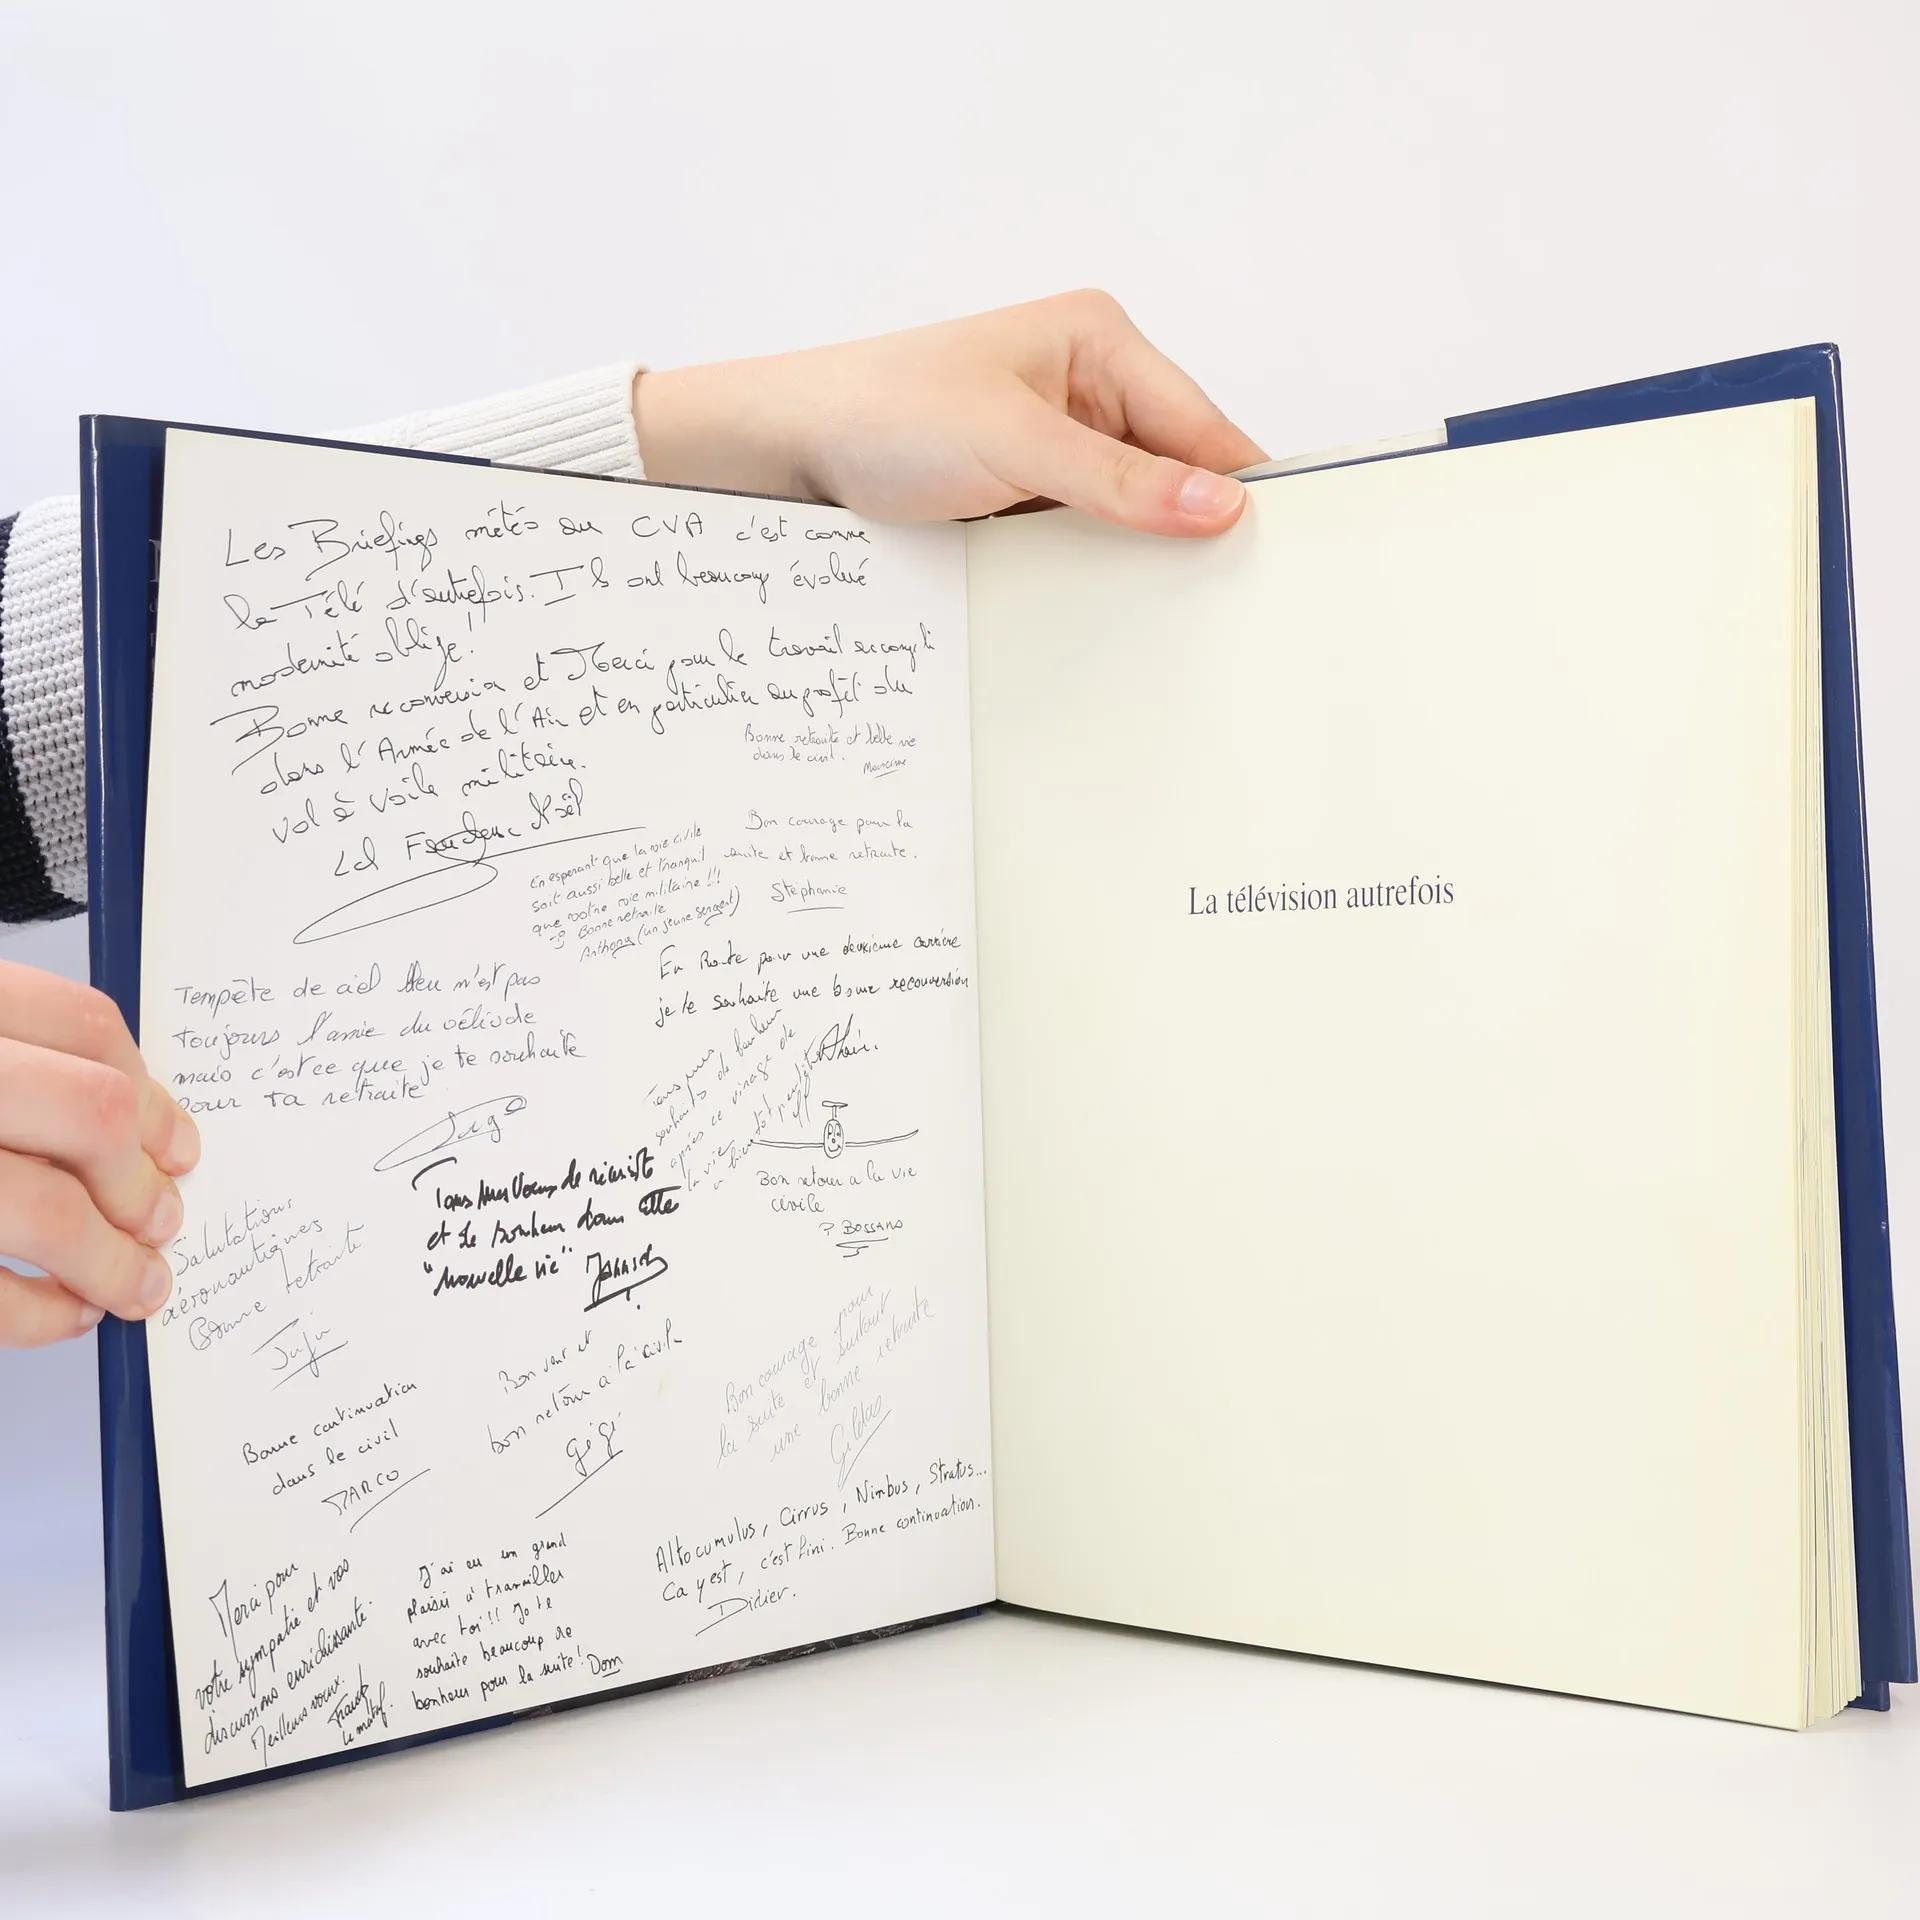 Les Briefings météo au CVA c'est comme
la Télé d'autrefois. Ils ont beaucoup évolué
modernité oblige!
Bonne reconversion et Merci pour le travail accompli
dans l'Armée de l'Air et en particulier au profit du
vol à voile militaire.
Lcl Noël
Bonne retraite et belle vie
dans le civil.
Maxime
En espérant que la vie civile
soit aussi belle et tranquil
que votre vie militaire !!!
Bonne retraite
Anthony (un jeune sergent)
Bon courage pour la
suite et bonne retraite.
Stéphanie
En Route pour une deuxième carrière
je te souhaite une bonne reconversion
Tempête de ciel bleu n'est pas
toujours l'amie du vélivole
mais c'est ce que je te souhaite
pour ta retraite
Tous mes
souhaits de bonheur
après ce virage de
la vie
a bientôt peut être
Bon retour a la vie
civile
P BOSSANO
Tous mes Voeux de réussite
et de bonheur dans cette
"Nouvelle vie"
Salutations
aéronautiques
Bonne retraite
Juju
Bon vent et
bon retour à la civile
gégé
Bon courage pour
la suite et surtout
une bonne retraite
Gildas
Bonne continuation
dans le civil
MARCO
Altocumulus, Cirrus, Nimbus, Stratus...
Ca y est, c'est fini. Bonne continuation.
Didier.
Merci pour
votre sympatie et vos
discussions enrichissante.
Meilleurs voeux.
Franck
J'ai eu un grand
plaisir à travailler
avec toi!! Je te
souhaite beaucoup de
bonheur pour la suite! Dom
La télévision autrefois